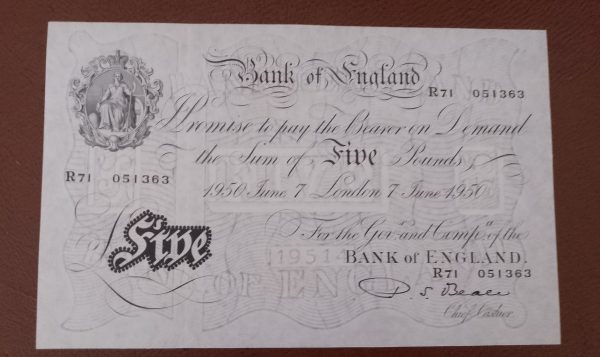 Bank of England
R71 051363
I Promise to pay the Bearer on Demand
the Sum of Five Pounds
R71 051363
1950 June 7 London 7 June 1950
For the Govr. and Compa. of the
Five
BANK OF ENGLAND.
R71 051363
P. S. Beale
Chief Cashier